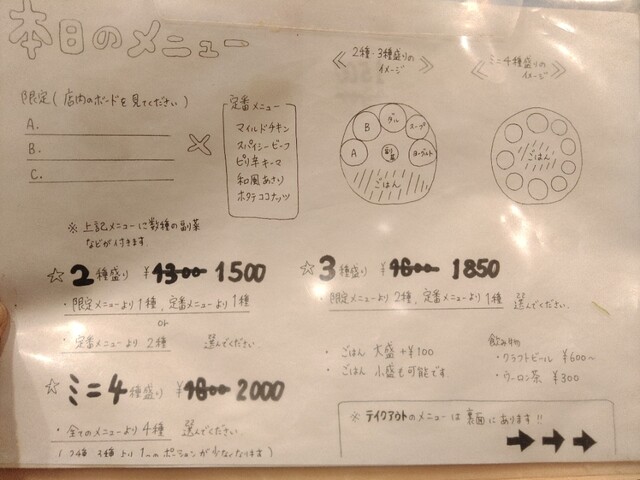 本日のメニュー
限定(店内のボードを見てください)
A.
B.
C.
×
定番メニュー
マイルドチキン
スパイシービーフ
ピリ辛キーマ
和風あさり
ホタテココナッツ
※上記メニューに数種の副菜
などが付きます
《2種・3種盛りの
イメージ》
A
B
ダル
スープ
ヨーグルト
副菜
ごはん
《ミニ4種盛りの
イメージ》
ごはん
☆2種盛り ¥1300 1500
・限定メニューより1種、定番メニューより1種
or
・定番メニューより2種 選んでください
☆3種盛り ¥1600 1850
・限定メニューより2種、定番メニューより1種 選んでください
・ごはん 大盛+¥100
・ごはん 小盛も可能です
飲み物
・クラフトビール ¥600〜
・ウーロン茶 ¥300
☆ミニ4種盛り ¥1800 2000
・全てのメニューより4種 選んでください
(2種、3種より1つのポーションが少なくなります)
※テイクアウトのメニューは裏面にあります!!
→→→